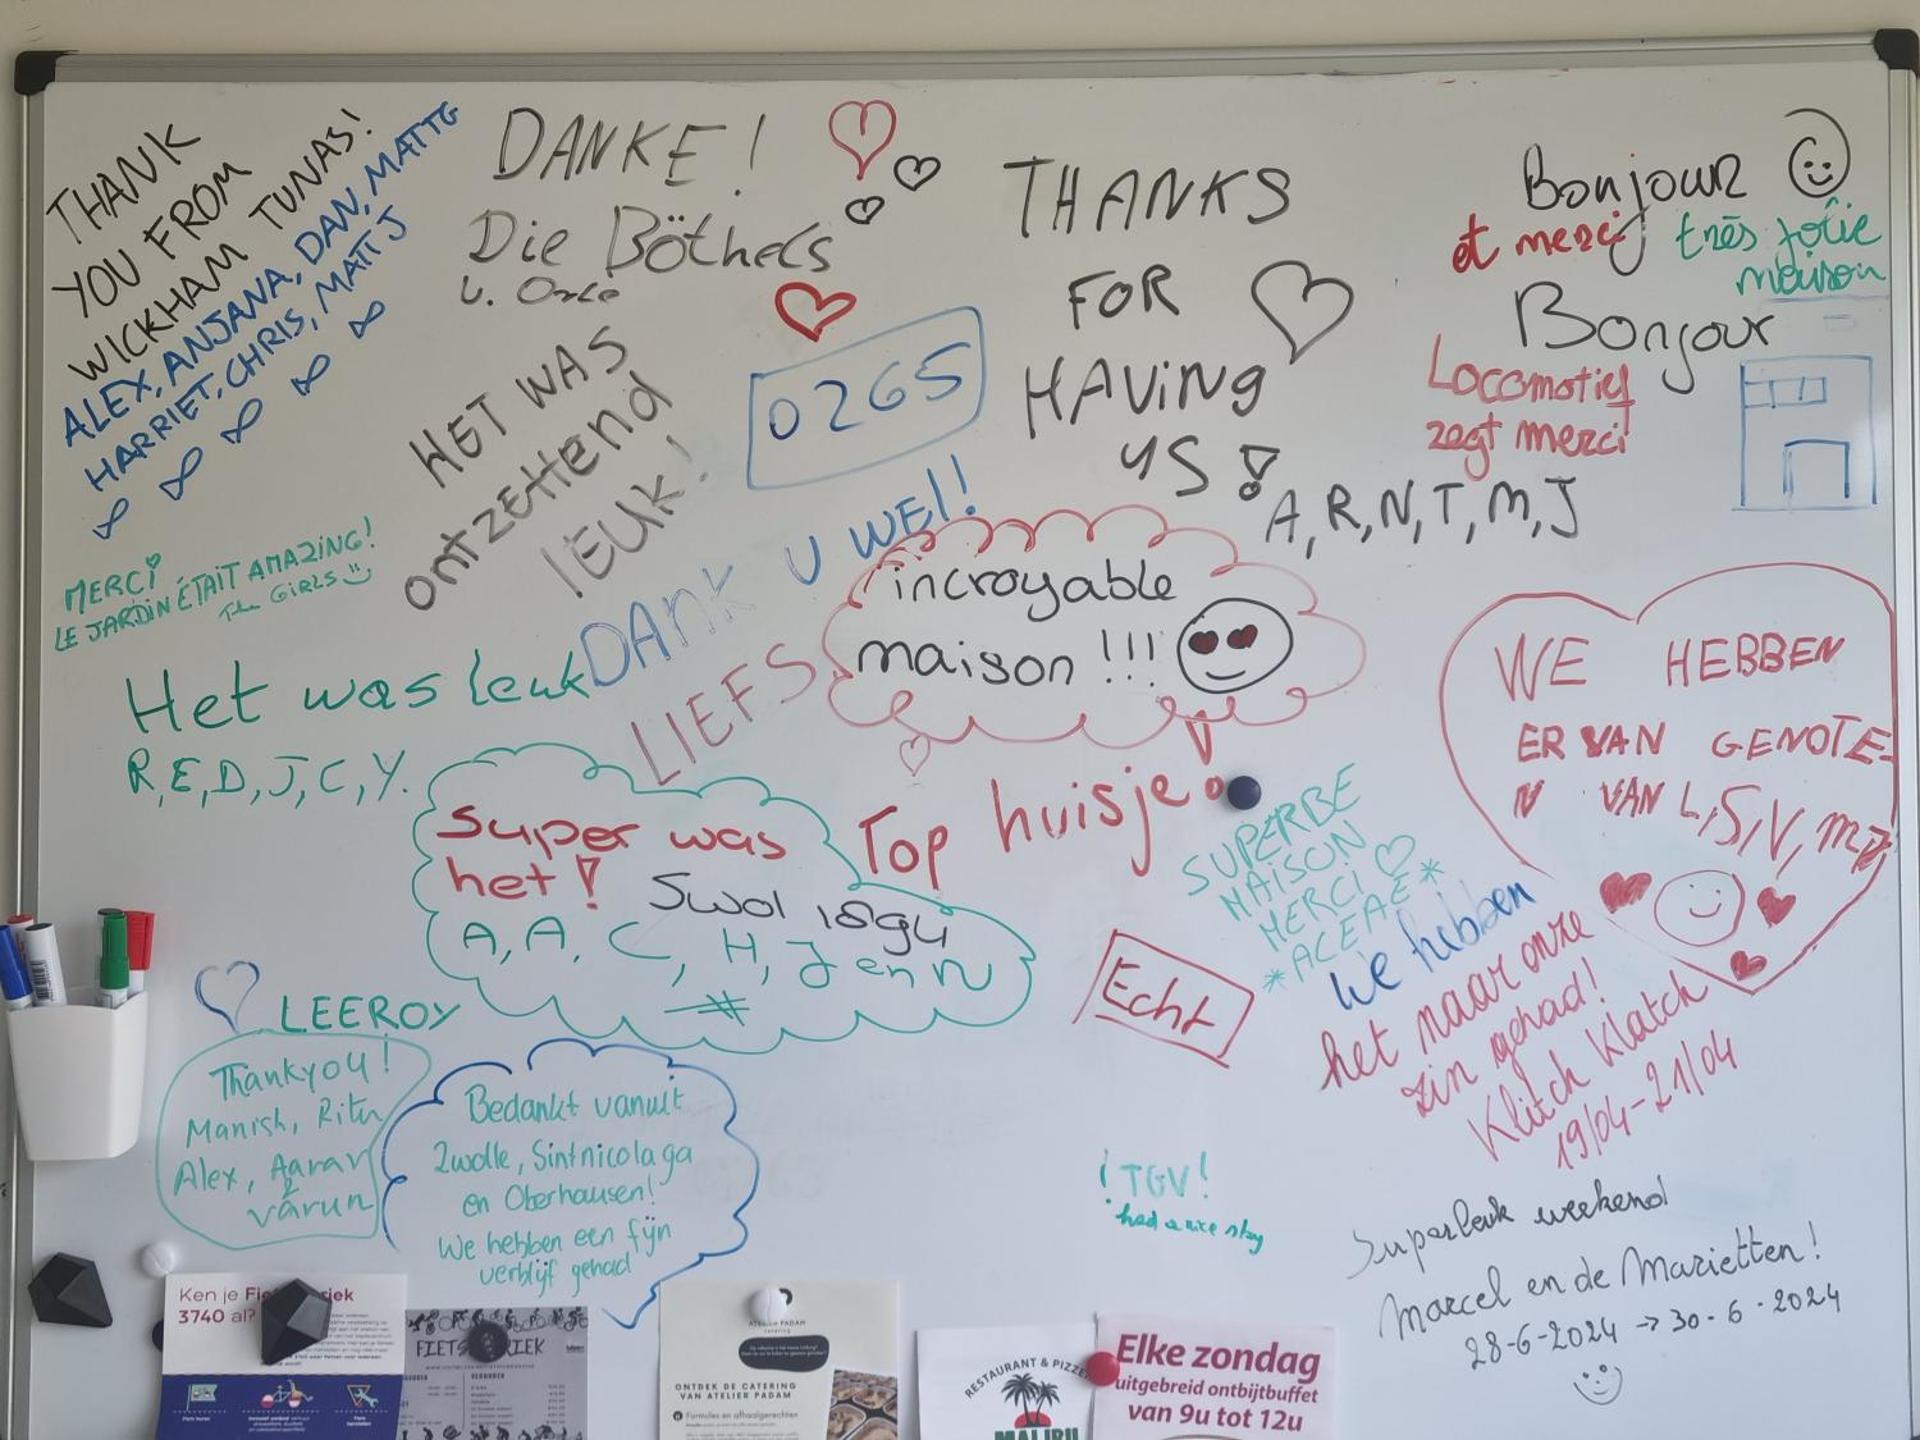 THANK
YOU FROM
WICKHAM TUNAS!
ALEX, ANJANA, DAN, MATTG
HARRIET, CHRIS, MATT J
DANKE!
Die Böthels
THANKS
FOR
HAVING
US!
A, R, N, T, M, J
Bonjour
et merci
très jolie
maison
Bonjour
Locomotief
zegt merci
0265
HET WAS
ontzettend
leuk!
DANK U WEL!
LIEFS
MERCI
LE JARDIN ÉTAIT AMAZING!
The GIRLS
Het was leuk
R, E, D, J, C, Y.
incroyable
maison !!!
WE HEBBEN
ER VAN GENOTE-
N VAN L, S, V, M,
Super was
het!
Swol
A, A, C, H, J en N
Top huisje!
SUPERBE
MAISON
MERCI
*ACEAE*
Echt
We hebben
het naar onze
zin gehad!
Klitch Klatch
19/04-21/04
LEEROY
Thankyou!
Manish, Ritu
Alex, Aarav
&
varun
Bedankt vanuit
Zwolle, Sintnicolaga
en Oberhausen!
We hebben een fijn
verblijf gehad
¡TGV!
had a nice stay
Superleuk weekend
Marcel en de Marietten!
28-6-2024 → 30-6-2024
Ken je
3740 al?
FIETS
ATELIER PADAM
ONTDEK DE CATERING
VAN ATELIER PADAM
Formules en afhaalgerechten
RESTAURANT &
MALIBU
Elke zondag
uitgebreid ontbijtbuffet
van 9u tot 12u